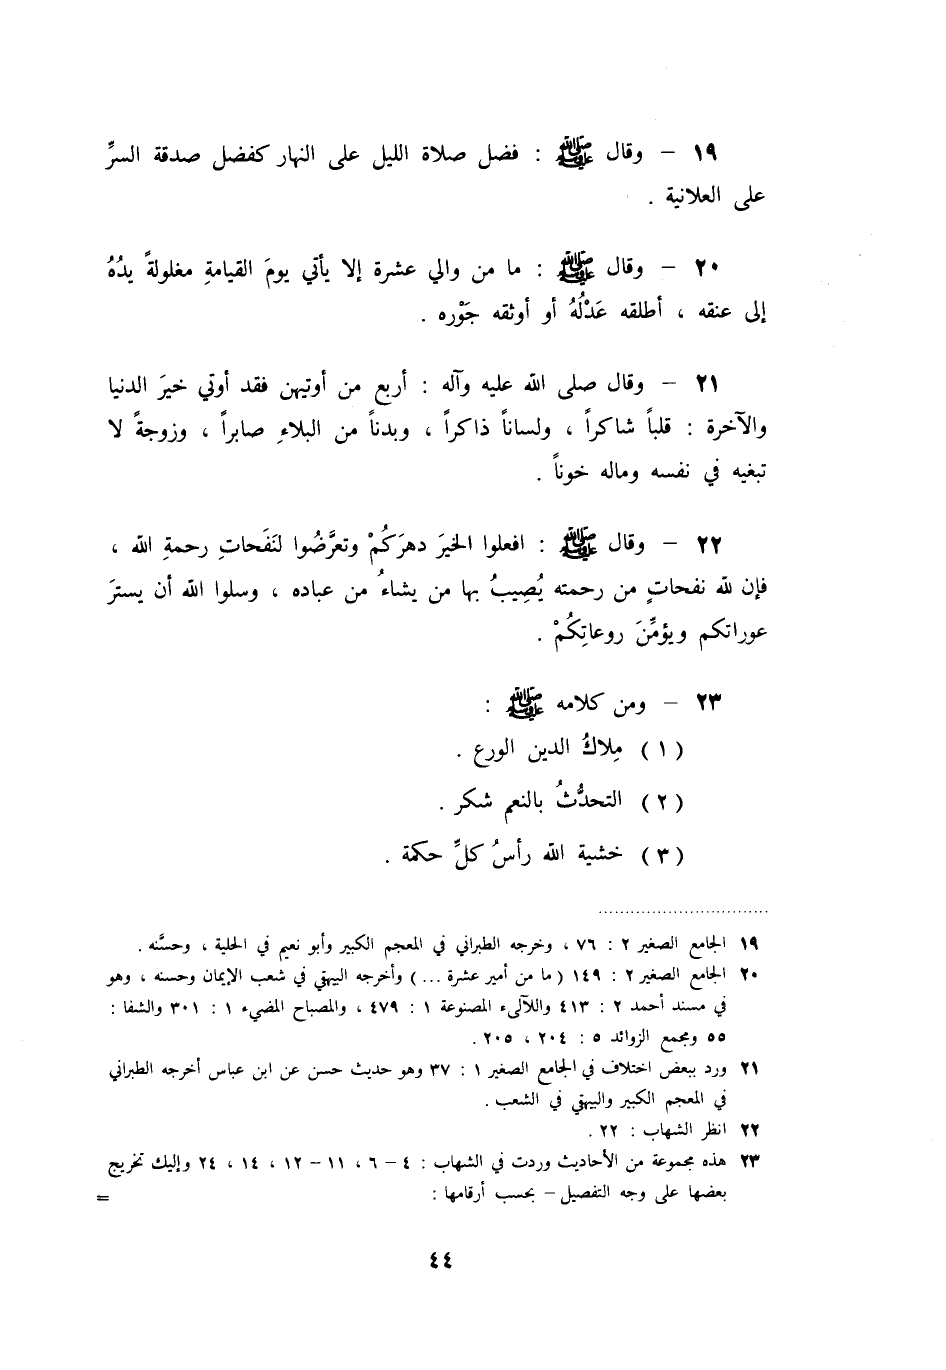 ١٩ – وقال ﷺ : فضل صلاة الليل على النهار كفضل صدقة السرِّ
على العلانية .
٢٠ – وقال ﷺ : ما من والي عشرة إلا يأتي يومَ القيامةِ مغلولةً يدُهُ
إلى عنقه ، أطلقه عَدْلُهُ أو أوثقه جَوْره .
٢١ – وقال صلى الله عليه وآله : أربع من أوتيهن فقد أوتي خيرَ الدنيا
والآخرة : قلباً شاكراً ، ولساناً ذاكراً ، وبدناً من البلاءِ صابراً ، وزوجةً لا
تبغيه في نفسه وماله خوناً .
٢٢ – وقال ﷺ : افعلوا الخيرَ دهرَكُمْ وتعرَّضُوا لنَفَحاتِ رحمةِ الله ،
فإن لله نفحاتٍ من رحمته يُصِيبُ بها من يشاءُ من عباده ، وسلوا الله أن يسترَ
عوراتكم ويؤمِّنَ روعاتِكُمْ .
٢٣ – ومن كلامه ﷺ :
( ١ ) مِلاكُ الدين الورع .
( ٢ ) التحدُّثُ بالنعم شكر .
( ٣ ) خشية الله رأسُ كلِّ حكمة .
١٩ الجامع الصغير ٢ : ٧٦ ، وخرجه الطبراني في المعجم الكبير وأبو نعيم في الحلية ، وحسَّنه .
٢٠ الجامع الصغير ٢ : ١٤٩ ( ما من أمير عشرة ... ) وأخرجه البيهقي في شعب الإيمان وحسنه ، وهو
في مسند أحمد ٢ : ٤١٣ واللآلىء المصنوعة ١ : ٤٧٩ ، والمصباح المضيء ١ : ٣٠١ والشفا :
٥٥ ومجمع الزوائد ٥ : ٢٠٤ ، ٢٠٥ .
٢١ ورد ببعض اختلاف في الجامع الصغير ١ : ٣٧ وهو حديث حسن عن ابن عباس أخرجه الطبراني
في المعجم الكبير والبيهقي في الشعب .
٢٢ انظر الشهاب : ٢٢ .
٢٣ هذه مجموعة من الأحاديث وردت في الشهاب : ٤ – ٦ ، ١١ – ١٢ ، ١٤ ، ٢٤ وإليك تخريج
بعضها على وجه التفصيل – بحسب أرقامها : =
٤٤